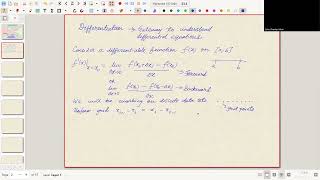 Differentiation → Gateway to understand
differential equations
Consider a differentiable function f(x) on [a,b]
a b
f'(x)|x=xi = lim Δx→0 f(xi+Δx) - f(xi) / Δx → Forward
or
lim Δx→0 f(xi) - f(xi-Δx) / Δx → Backward
We will be working on discrete data sets
Uniform grid xi+1 - xi = xi - xi-1
grid points